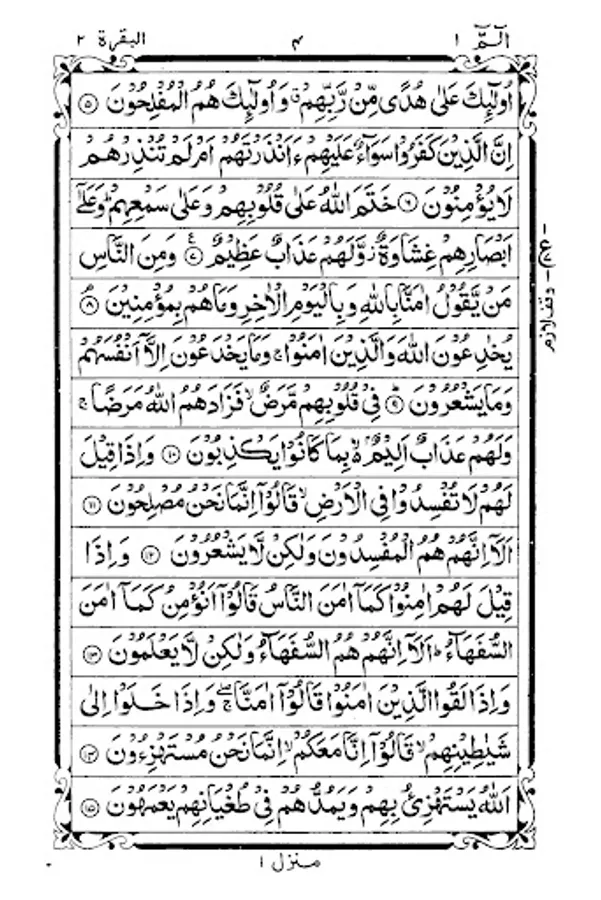 الٓمّٓ ١ ٤ البقرة ٢
اُولٰٓئِكَ عَلٰى هُدًى مِّنْ رَّبِّهِمْ ۗ وَاُولٰٓئِكَ هُمُ الْمُفْلِحُوْنَ ﴿٥﴾
اِنَّ الَّذِيْنَ كَفَرُوْا سَوَآءٌ عَلَيْهِمْ ءَاَنْذَرْتَهُمْ اَمْ لَمْ تُنْذِرْهُمْ
لَا يُؤْمِنُوْنَ ﴿٦﴾ خَتَمَ اللّٰهُ عَلٰى قُلُوْبِهِمْ وَعَلٰى سَمْعِهِمْ ؕ وَعَلٰٓى
اَبْصَارِهِمْ غِشَاوَةٌ ؗ وَّلَهُمْ عَذَابٌ عَظِيْمٌ ﴿٧﴾ ع وَمِنَ النَّاسِ
مَنْ يَّقُوْلُ اٰمَنَّا بِاللّٰهِ وَبِالْيَوْمِ الْاٰخِرِ وَمَا هُمْ بِمُؤْمِنِيْنَ ﴿٨﴾ۘ
يُخٰدِعُوْنَ اللّٰهَ وَالَّذِيْنَ اٰمَنُوْا ۚ وَمَا يَخْدَعُوْنَ اِلَّاۤ اَنْفُسَهُمْ
وَمَا يَشْعُرُوْنَ ﴿٩﴾ؕ فِىْ قُلُوْبِهِمْ مَّرَضٌ ۙ فَزَادَهُمُ اللّٰهُ مَرَضًا ۚ
وَلَهُمْ عَذَابٌ اَلِيْمٌۢ ۙ بِمَا كَانُوْا يَكْذِبُوْنَ ﴿١٠﴾ وَاِذَا قِيْلَ
لَهُمْ لَا تُفْسِدُوْا فِى الْاَرْضِ ۙ قَالُوْۤا اِنَّمَا نَحْنُ مُصْلِحُوْنَ ﴿١١﴾
اَلَاۤ اِنَّهُمْ هُمُ الْمُفْسِدُوْنَ وَلٰكِنْ لَّا يَشْعُرُوْنَ ﴿١٢﴾ وَاِذَا
قِيْلَ لَهُمْ اٰمِنُوْا كَمَاۤ اٰمَنَ النَّاسُ قَالُوْۤا اَنُؤْمِنُ كَمَاۤ اٰمَنَ
السُّفَهَآءُ ؕ اَلَاۤ اِنَّهُمْ هُمُ السُّفَهَآءُ وَلٰكِنْ لَّا يَعْلَمُوْنَ ﴿١٣﴾
وَاِذَا لَقُوا الَّذِيْنَ اٰمَنُوْا قَالُوْۤا اٰمَنَّا ۖۚ وَاِذَا خَلَوْا اِلٰى
شَيٰطِيْنِهِمْ ۙ قَالُوْۤا اِنَّا مَعَكُمْ ۙ اِنَّمَا نَحْنُ مُسْتَهْزِءُوْنَ ﴿١٤﴾
اَللّٰهُ يَسْتَهْزِئُ بِهِمْ وَيَمُدُّهُمْ فِىْ طُغْيَانِهِمْ يَعْمَهُوْنَ ﴿١٥﴾
منزل ١
وقف لازم